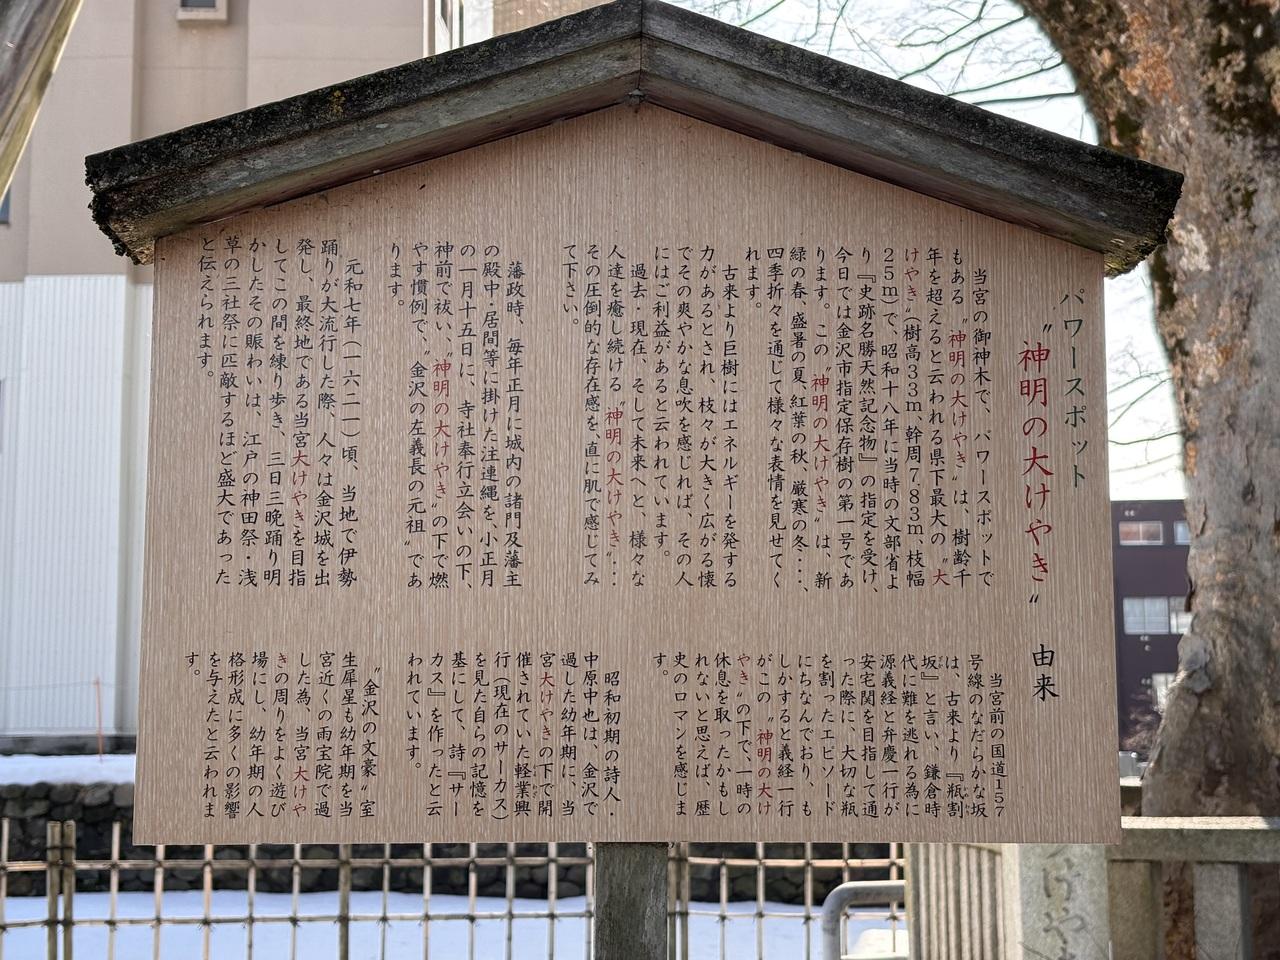 パワースポット
〝神明の大けやき〟 由来
当宮の御神木で、パワースポットで
もある〝神明の大けやき〟は、樹齢千
年を超えると云われる県下最大の〝大
けやき〟(樹高33m、幹周7.83m、枝幅
25m)で、昭和十八年に当時の文部省よ
り『史跡名勝天然記念物』の指定を受け、
今日では金沢市指定保存樹の第一号であ
ります。この〝神明の大けやき〟は、新
緑の春、盛暑の夏、紅葉の秋、厳寒の冬・・・、
四季折々を通じて様々な表情を見せてく
れます。
古来より巨樹にはエネルギーを発する
力があるとされ、枝々が大きく広がる懐
でその爽やかな息吹を感じれば、その人
にはご利益があると云われています。
過去・現在、そして未来へと、様々な
人達を癒し続ける〝神明の大けやき〟・・・
その圧倒的な存在感を、直に肌で感じてみ
て下さい。
藩政時、毎年正月に城内の諸門及藩主
の殿中・居間等に掛けた注連縄を、小正月
の一月十五日に、寺社奉行立会いの下、
神前で祓い、〝神明の大けやき〟の下で燃
やす慣例で、〝金沢の左義長の元祖〟であ
ります。
元和七年(一六二一)頃、当地で伊勢
踊りが大流行した際、人々は金沢城を出
発し、最終地である当宮大けやきを目指
してこの間を練り歩き、三日三晩踊り明
かしたその賑わいは、江戸の神田祭・浅
草の三社祭に匹敵するほど盛大であった
と伝えられます。
当宮前の国道157
号線のなだらかな坂
は、古来より『瓶割
坂』と言い、鎌倉時
代に難を逃れる為に
源義経と弁慶一行が
安宅関を目指して通
った際に、大切な瓶
を割ったエピソード
にちなんでおり、も
しかすると義経一行
がこの〝神明の大け
やき〟の下で、一時の
休息を取ったかもし
れないと思えば、歴
史のロマンを感じま
す。
昭和初期の詩人・
中原中也は、金沢で
過した幼年期に、当
宮大けやきの下で開
催されていた軽業興
行(現在のサーカス)
を見た自らの記憶を
基にして、詩『サー
カス』を作ったと云
われています。
〝金沢の文豪〟室
生犀星も幼年期を当
宮近くの雨宝院で過
した為、当宮大けや
きの周りをよく遊び
場にし、幼年期の人
格形成に多くの影響
を与えたと云われま
す。
けやき